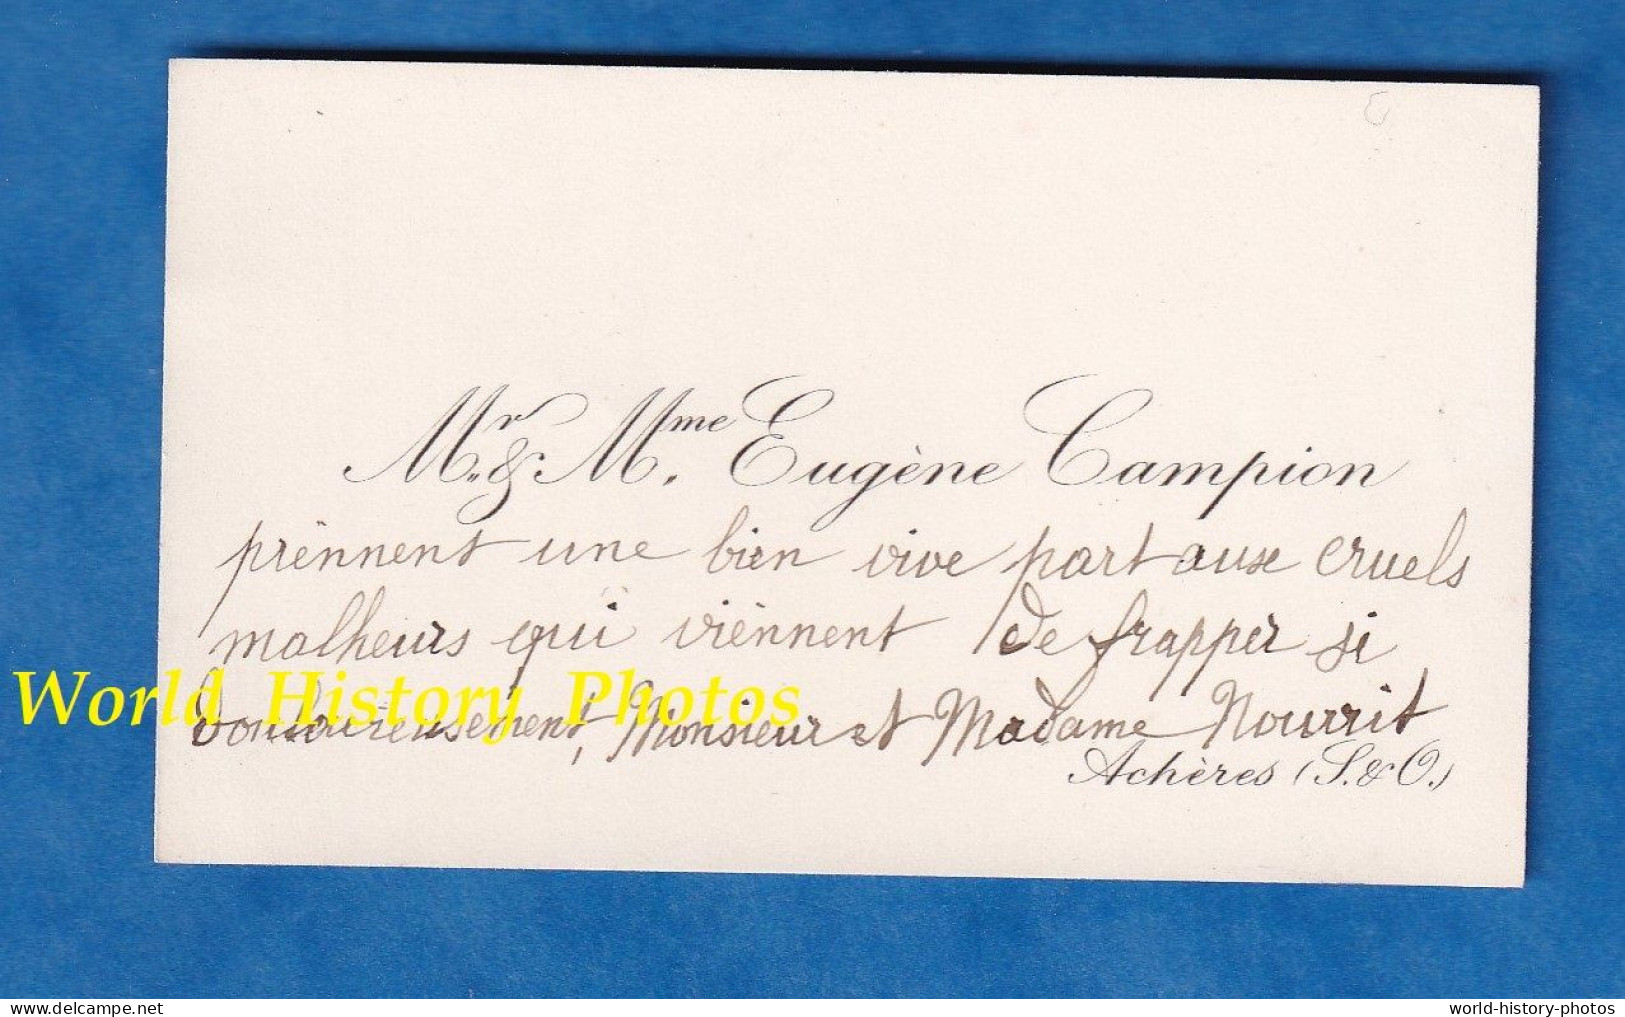 Mr. & Mme. Eugène Campion
prènnent une bien vive part aux cruels
malheurs qui viènnent de frapper si
douloureusement, Monsieur et Madame Nourrit
Achères (S. & O.)
World History Photos
delcampe.net
world-history-photos